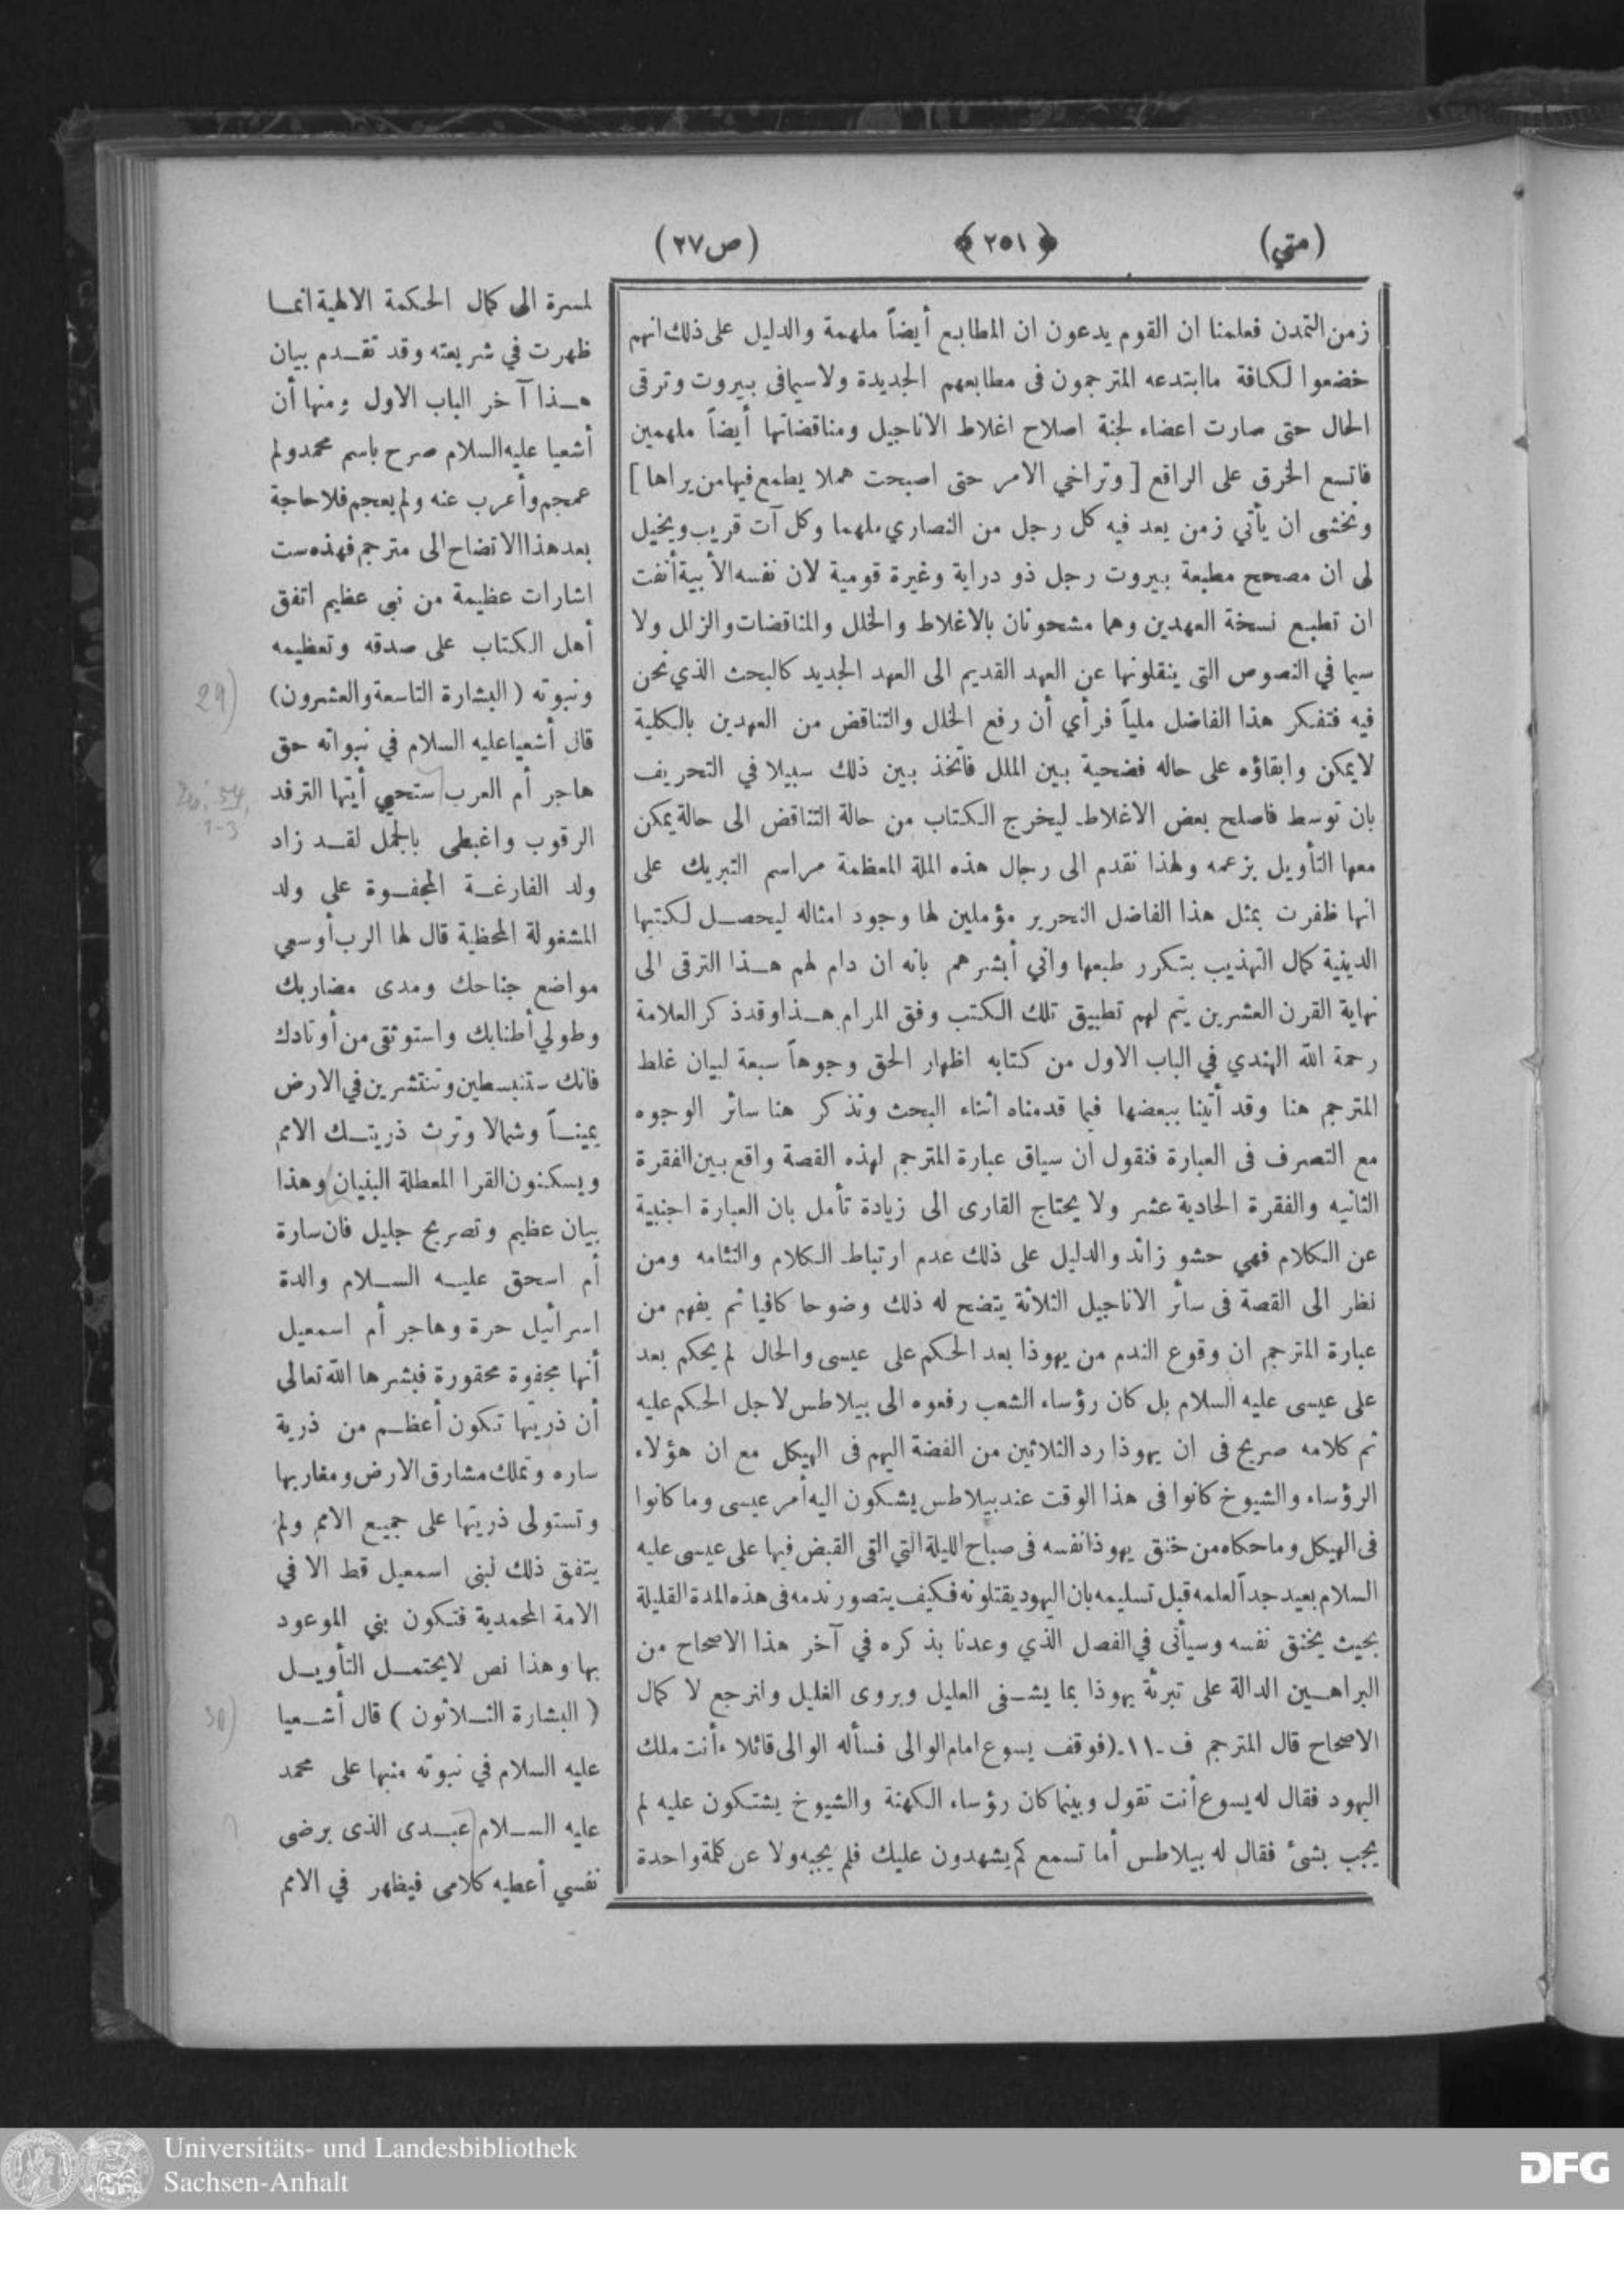 (متي)
﴿٢٥١﴾
(ص٢٧)
زمن التمدن فعلمنا ان القوم يدعون ان المطابع أيضاً ملهمة والدليل على ذلك انهم
خضعوا لكافة ماابتدعه المترجمون فى مطابعهم الجديدة ولاسيمافى بيروت وترقى
الحال حتى صارت اعضاء لجنة اصلاح اغلاط الاناجيل ومناقضاتها أيضاً ملهمين
فاتسع الخرق على الراقع [وتراخي الامر حتى اصبحت هملا يطمع فيهامن يراها]
ونخشى ان يأتي زمن يعد فيه كل رجل من النصاري ملهما وكل آت قريب ويخيل
لى ان مصحح مطبعة بيروت رجل ذو دراية وغيرة قومية لان نفسه الأبية أنفت
ان تطبع نسخة العهدين وهما مشحونان بالاغلاط والخلل والمناقضات والزلل ولا
سيما في النصوص التى ينقلونها عن العهد القديم الى العهد الجديد كالبحث الذي نحن
فيه فتفكر هذا الفاضل ملياً فرأي أن رفع الخلل والتناقض من العهدين بالكلية
لايمكن وابقاؤه على حاله فضحية بين الملل فاتخذ بين ذلك سبيلا في التحريف
بان توسط فاصلح بعض الاغلاط ليخرج الكتاب من حالة التناقض الى حالة يمكن
معها التأويل بزعمه ولهذا نقدم الى رجال هذه الملة المعظمة مراسم التبريك على
انها ظفرت بمثل هذا الفاضل النحرير مؤملين لها وجود امثاله ليحصل لكتبها
الدينية كمال التهذيب بتكرر طبعها واني أبشرهم بانه ان دام لهم هذا الترقى الى
نهاية القرن العشرين يتم لهم تطبيق تلك الكتب وفق المرام هذاوقدذكر العلامة
رحمة الله الهندي في الباب الاول من كتابه اظهار الحق وجوهاً سبعة لبيان غلط
المترجم هنا وقد أتينا ببعضها فيما قدمناه اثناء البحث ونذكر هنا سائر الوجوه
مع التصرف فى العبارة فنقول ان سياق عبارة المترجم لهذه القصة واقع بين الفقرة
الثانيه والفقرة الحادية عشر ولا يحتاج القارى الى زيادة تأمل بان العبارة اجنبية
عن الكلام فهي حشو زائد والدليل على ذلك عدم ارتباط الكلام والتئامه ومن
نظر الى القصة فى سائر الاناجيل الثلاثة يتضح له ذلك وضوحا كافيا ثم يفهم من
عبارة المترجم ان وقوع الندم من يهوذا بعد الحكم على عيسى والحال لم يحكم بعد
على عيسى عليه السلام بل كان رؤساء الشعب رفعوه الى بيلاطس لاجل الحكم عليه
ثم كلامه صريح فى ان يهوذا رد الثلاثين من الفضة اليهم فى الهيكل مع ان هؤلاء
الرؤساء والشيوخ كانوا فى هذا الوقت عند بيلاطس يشكون اليه أمر عيسى وما كانوا
فى الهيكل وماحكاه من خنق يهوذانفسه فى صباح الليلة التي القى القبض فيها على عيسى عليه
السلام بعيد جداً لعلمه قبل تسليمه بان اليهود يقتلونه فكيف يتصور ندمه فى هذه المدة القليلة
بحيث يخنق نفسه وسيأتى في الفصل الذي وعدنا بذكره في آخر هذا الاصحاح من
البراهين الدالة على تبرئة يهوذا بما يشفى العليل ويروى الغليل ولنرجع لا كمال
الاصحاح قال المترجم ف ـ١١ـ (فوقف يسوع امام الوالى فسأله الوالى قائلا ءأنت ملك
اليهود فقال له يسوع أنت تقول وبينما كان رؤساء الكهنة والشيوخ يشتكون عليه لم
يجب بشئ فقال له بيلاطس أما تسمع كم يشهدون عليك فلم يجبه ولا عن كلمة واحدة
لمسرة الى كمال الحكمة الالهية انما
ظهرت في شريعته وقد تقدم بيان
هذا آخر الباب الاول ومنها أن
أشعيا عليه السلام صرح باسم محمدولم
عمجم وأعرب عنه ولم يعجم فلاحاجة
بعد هذا الاتضاح الى مترجم فهذه ست
اشارات عظيمة من نبى عظيم اتفق
أهل الكتاب على صدقه وتعظيمه
ونبوته (البشارة التاسعة والعشرون)
قال أشعياعليه السلام في نبواته حق
هاجر أم العرب ستحيي أيتها الترفد
الرقوب واغبطى بالجمل لقد زاد
ولد الفارغة المجفوة على ولد
المشغولة المحظية قال لها الرب أوسعي
مواضع جناحك ومدى مضاربك
وطولي أطنابك واستوثقى من أوتادك
فانك ستنبسطين وتنتشرين في الارض
يميناً وشمالا وترث ذريتك الامم
ويسكنون القرا المعطلة البنيان وهذا
بيان عظيم وتصريح جليل فان سارة
أم اسحق عليه السلام والدة
اسرائيل حرة وهاجر أم اسمعيل
أنها مجفوة محقورة فبشرها الله تعالى
أن ذريتها تكون أعظم من ذرية
ساره وتملك مشارق الارض ومغاربها
وتستولى ذريتها على جميع الامم ولم
يتفق ذلك لبنى اسمعيل قط الا في
الامة المحمدية فتكون بني الموعود
بها وهذا نص لايحتمل التأويل
(البشارة الثلاثون) قال أشعيا
عليه السلام في نبوته منبها على محمد
عليه السلام عبدى الذى برضى
نفسي أعطيه كلامى فيظهر في الامم
29)
54,
1-3
30)
Universitäts- und Landesbibliothek
Sachsen-Anhalt
DFG